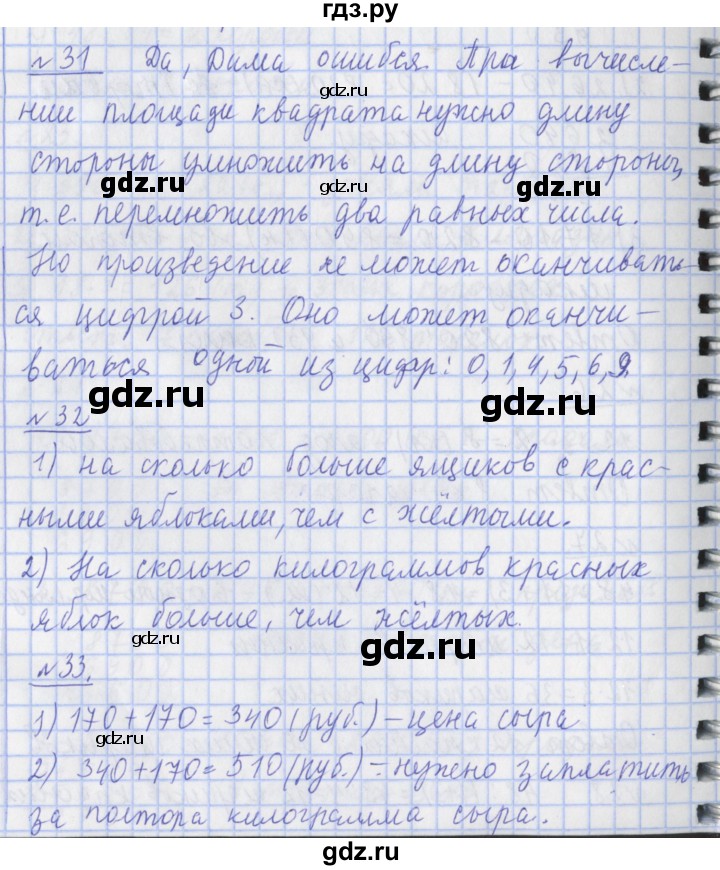 гдз.ру
№31 Да, Дима ошибся. При вычисле-
нии площади квадрата нужно длину
стороны умножить на длину стороны,
т.е. перемножить два равных числа.
Но произведение не может оканчивать-
ся цифрой 3. Оно может оканчи-
ваться одной из цифр: 0, 1, 4, 5, 6, 9.
№32
1) на сколько больше ящиков с крас-
ными яблоками, чем с жёлтыми.
2) На сколько килограммов красных
яблок больше, чем жёлтых.
№33.
1) 170+170=340 (руб.) – цена сыра
2) 340+170=510 (руб.) – нужно заплатить
за полтора килограмма сыра.
gdz.ru
gdz.ru
gdz.ru
gdz.ru
gdz.ru
gdz.ru
gdz.ru
gdz.ru
gdz.ru
gdz.ru
gdz.ru
gdz.ru
gdz.ru
gdz.ru